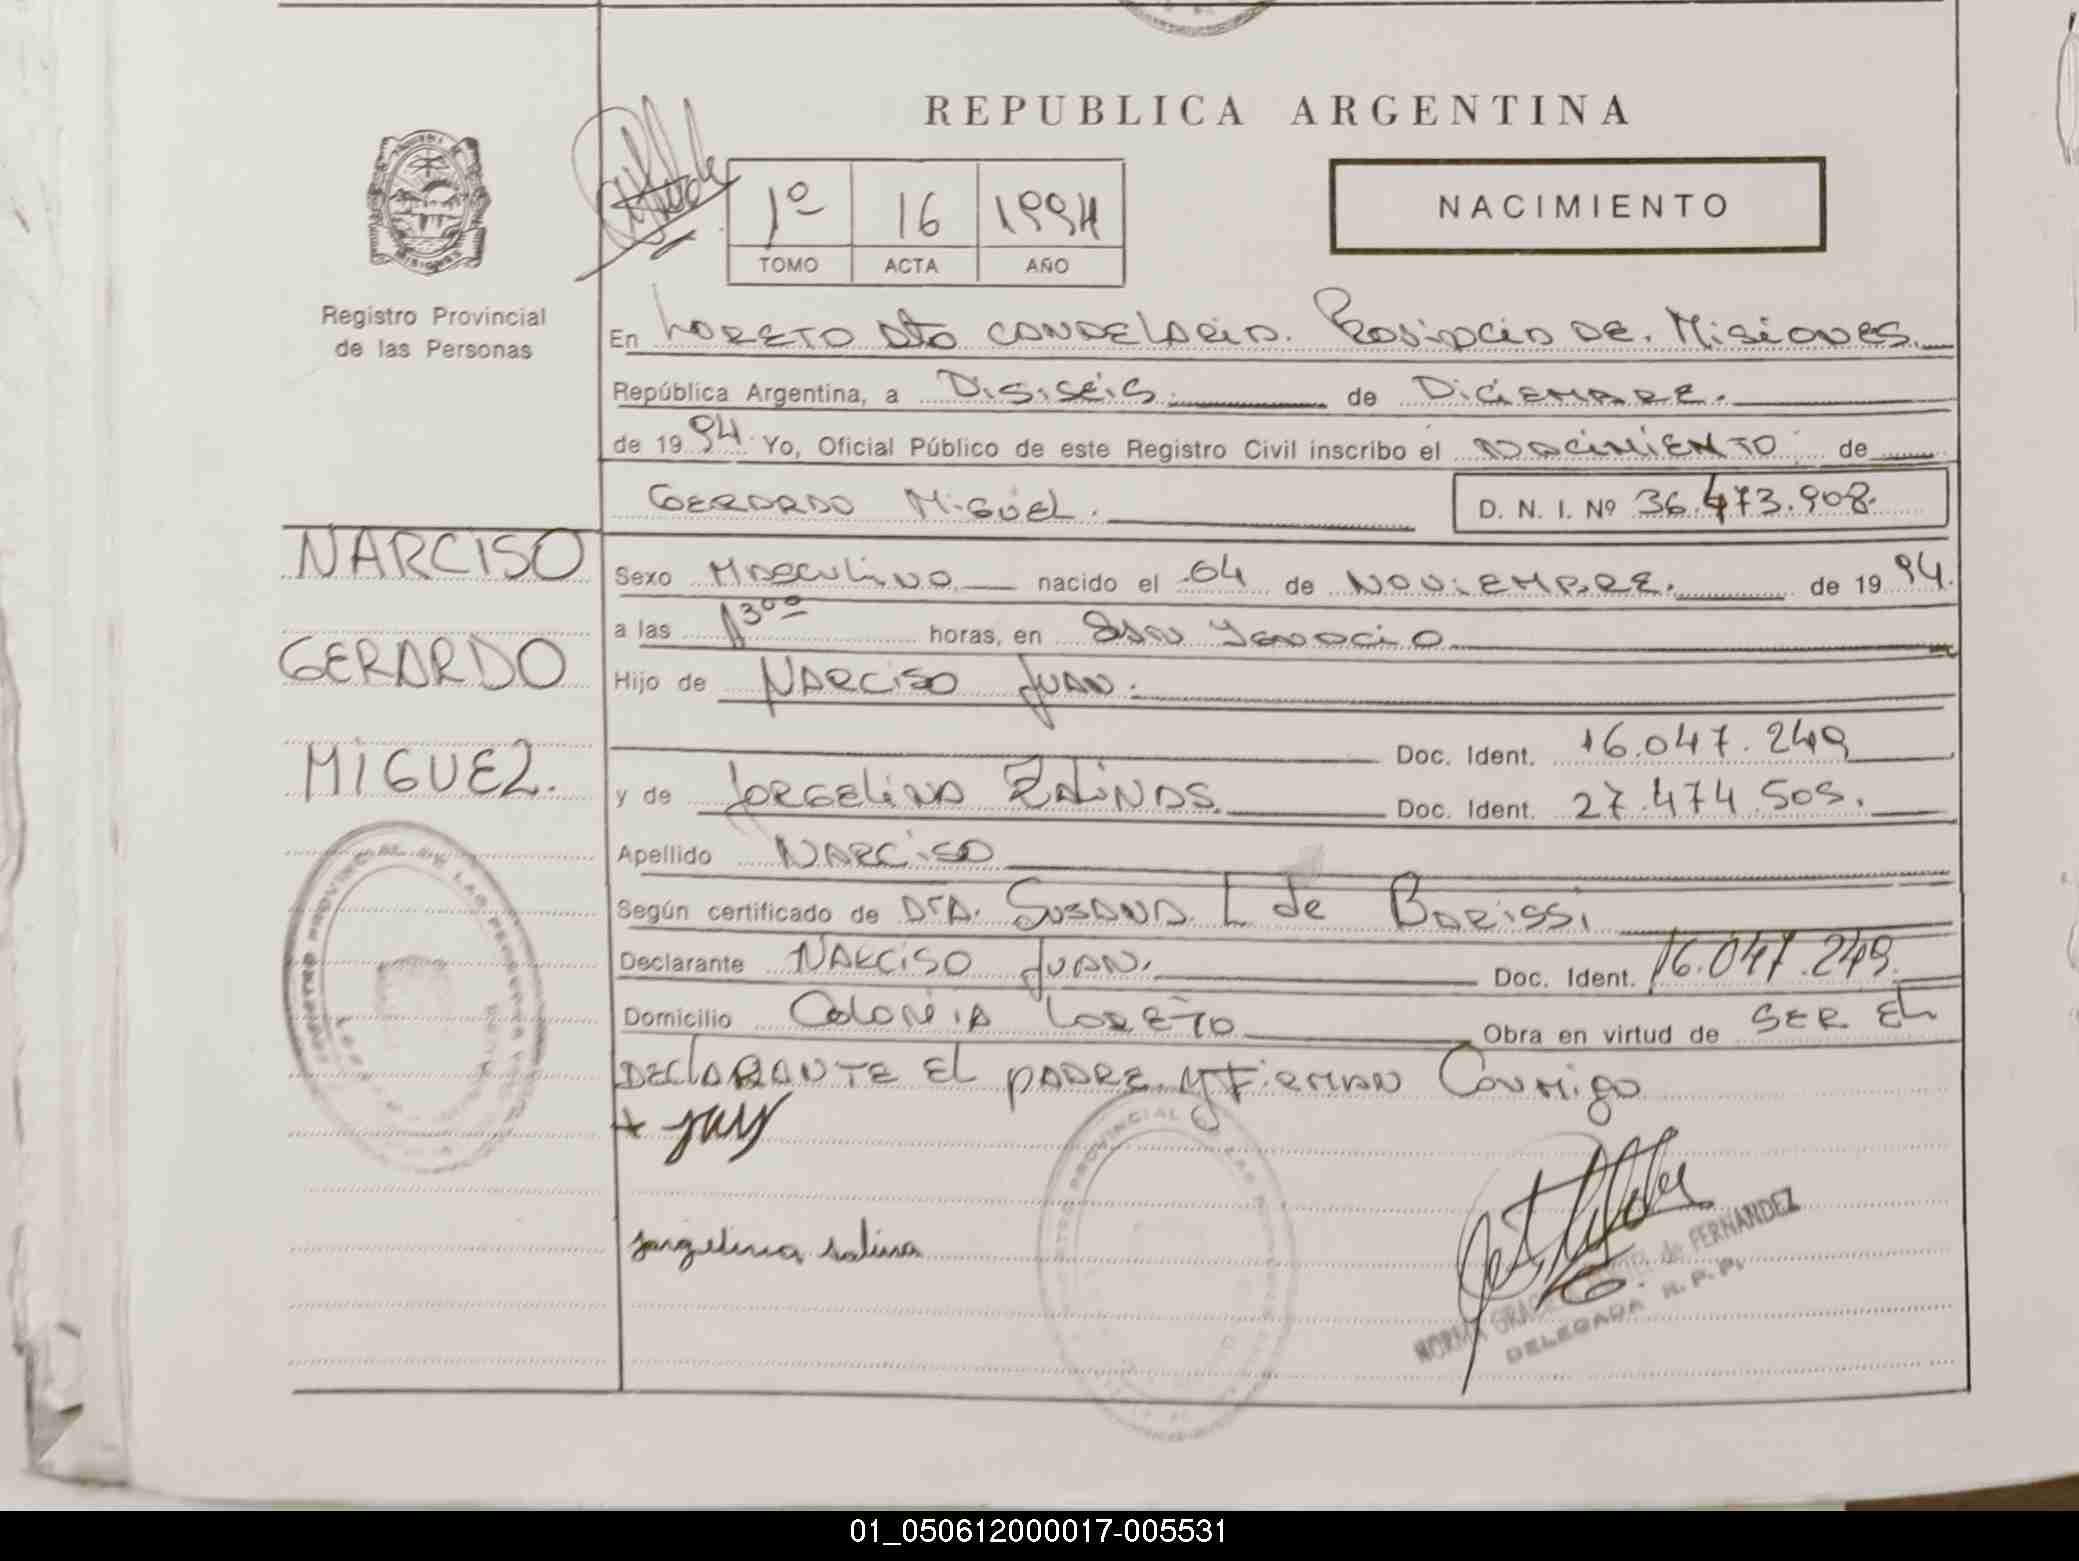 REPUBLICA ARGENTINA
1º 16 1994
TOMO ACTA AÑO
NACIMIENTO
Registro Provincial
de las Personas
En LORETO Dto CANDELARIA. Provincia DE. Misiones.
República Argentina, a DiSiSéiS de DiCiEMBRE.
de 1994. Yo, Oficial Público de este Registro Civil inscribo el NACIMIENTO de
GERARDO MiGUEL. D. N. I. Nº 36.473.908.
NARCISO
GERARDO
MIGUEL.
Sexo MASCULiNO nacido el 04 de NOViEMBRE. de 1994.
a las 13ºº horas, en SAN YGNACiO
Hijo de NARCISO JUAN.
Doc. Ident. 16.047.249
y de JORGELiNA ZALiNAS. Doc. Ident. 27.474.505.
Apellido NARCiSO
Según certificado de DrA. SUSANA L de BARiSSi
Declarante NARCISO JUAN. Doc. Ident. 16.047.249.
Domicilio COLONiA LORETO Obra en virtud de SER EL
DECLARANTE EL PADRE Y FiRMAN CONMigo
jorgelina salina
NORMA de FERNANDEZ
DELEGADA R.P.P.
REGISTRO PROVINCIAL DE LAS PERSONAS
01_050612000017-005531